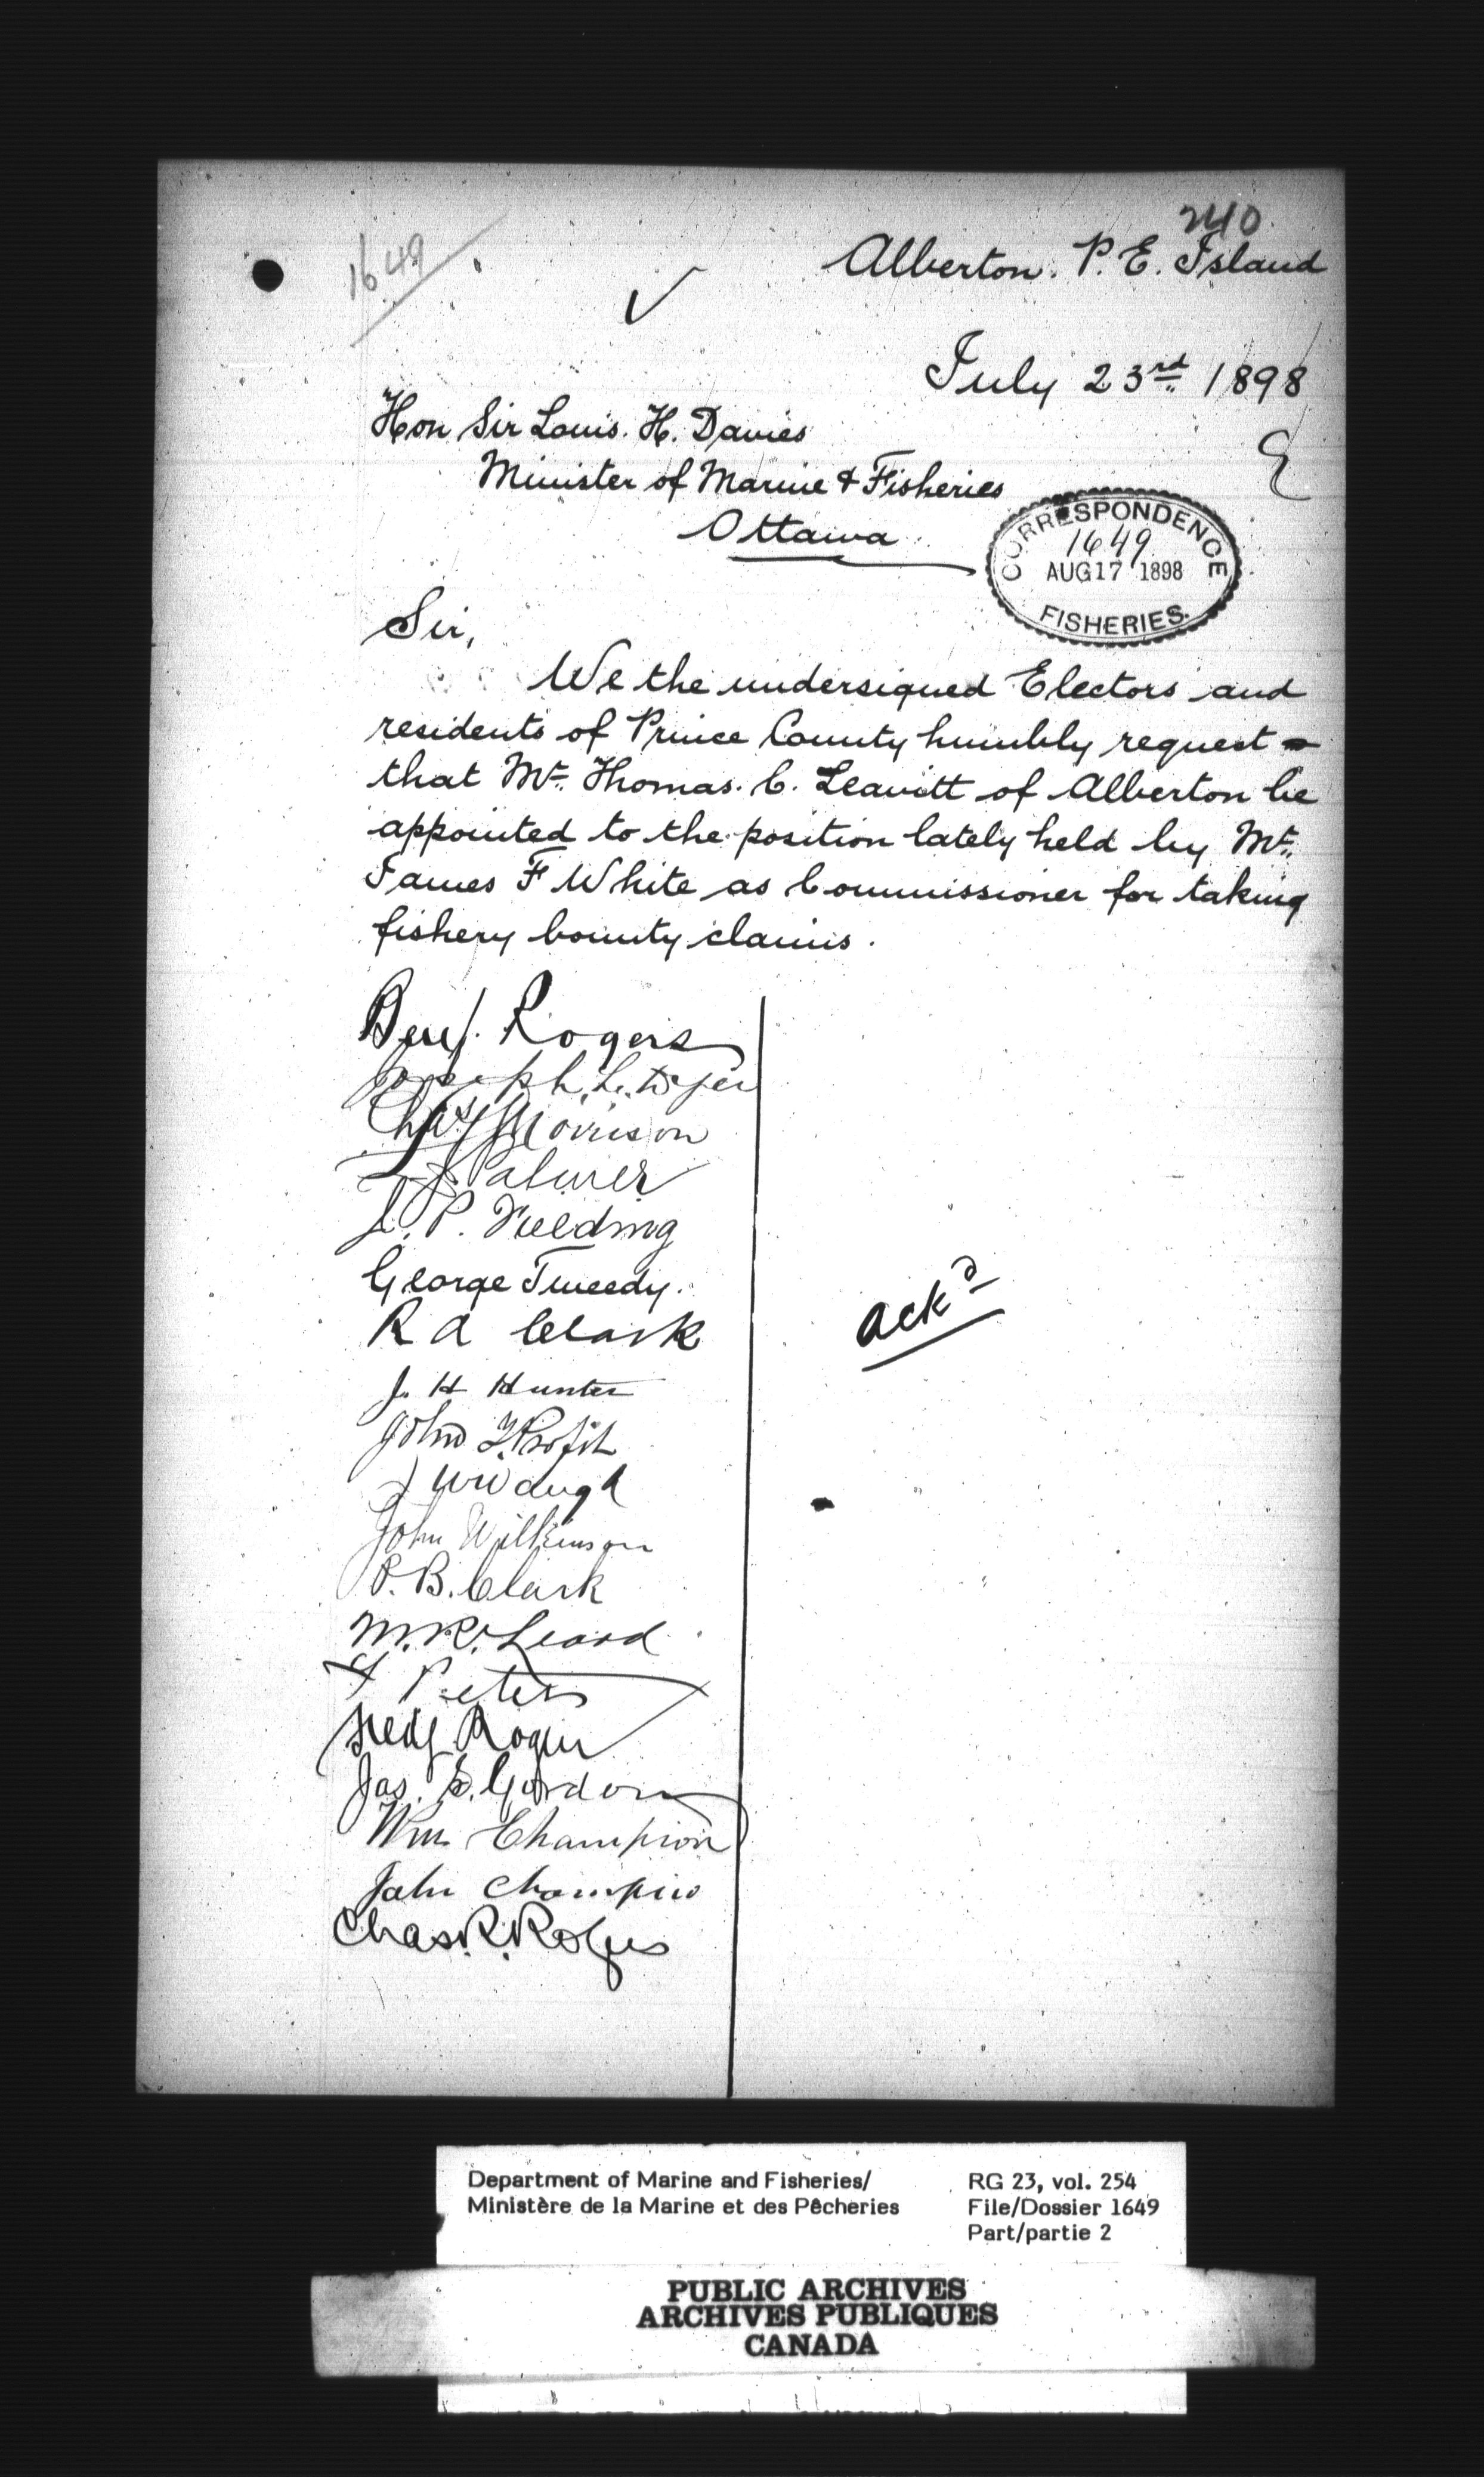 240
1649
Alberton. P. E. Island
July 23rd 1898
Hon Sir Louis. H. Davies
Minister of Marine & Fisheries
Ottawa
CORRESPONDENCE
1649
AUG 17 1898
FISHERIES.
Sir,
We the undersigned Electors and
residents of Prince County humbly request
that Mr. Thomas. C. Leavitt of Alberton be
appointed to the position lately held by Mr.
James F White as Commissioner for taking
fishery bounty claims.
Benj. Rogers
Joseph L.
Chas Morrison
Palmer
J. P. Fielding
George Tweedy.
R A Clark
ack'd
J. H Hunter
John F. Profit
J W Waugh
John Wilkinson
P. B. Clark
M. R. Leard
Peters
Rogers
Jas. E. Gordon
Wm. Champion
John Champion
Chas. R. Rogers
Department of Marine and Fisheries/
Ministère de la Marine et des Pêcheries
RG 23, vol. 254
File/Dossier 1649
Part/partie 2
PUBLIC ARCHIVES
ARCHIVES PUBLIQUES
CANADA